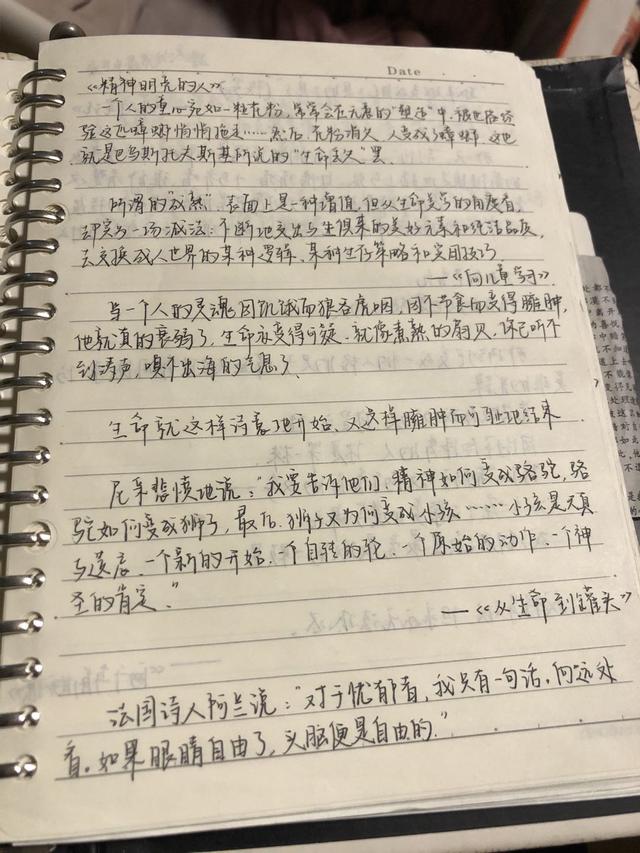 Date
《精神明亮的人》
一个人的童心宛如一粒花粉，常常会在无意的"塑造"中，被世俗经
验这匹蟑螂悄悄拖走……然后，花粉消失，人变成了蟑螂。这也
就是巴乌斯托夫斯基所说的"生命丢失"罢
所谓的"成熟"，表面上是一种增值，但从生命美学的角度看，
却实为一场减法：不断地交出与生俱来的美好元素和纯洁品质，
去交换成人世界的某种逻辑、某种生存策略和实用技巧
——《向儿童学习》
当一个人的灵魂因饥饿而狼吞虎咽，因不节食而变得臃肿，
他就真的衰弱了，生命亦变得可疑、就像煮熟的扇贝，你已听不
到涛声，嗅不出海的气息了
生命就这样诗意地开始、又这样臃肿而可耻地结束
尼采悲愤地说："我要告诉他们，精神如何变成骆驼，骆
驼如何变成狮子，最后，狮子又为何变成小孩……小孩是天真
与遗忘、一个新的开始、一个自转的轮、一个原始的动作、一个神
圣的肯定。"
——《从生命到罐头》
法国诗人阿兰说："对于忧郁者，我只有一句话，向远处
看。如果眼睛自由了，头脑便是自由的。"